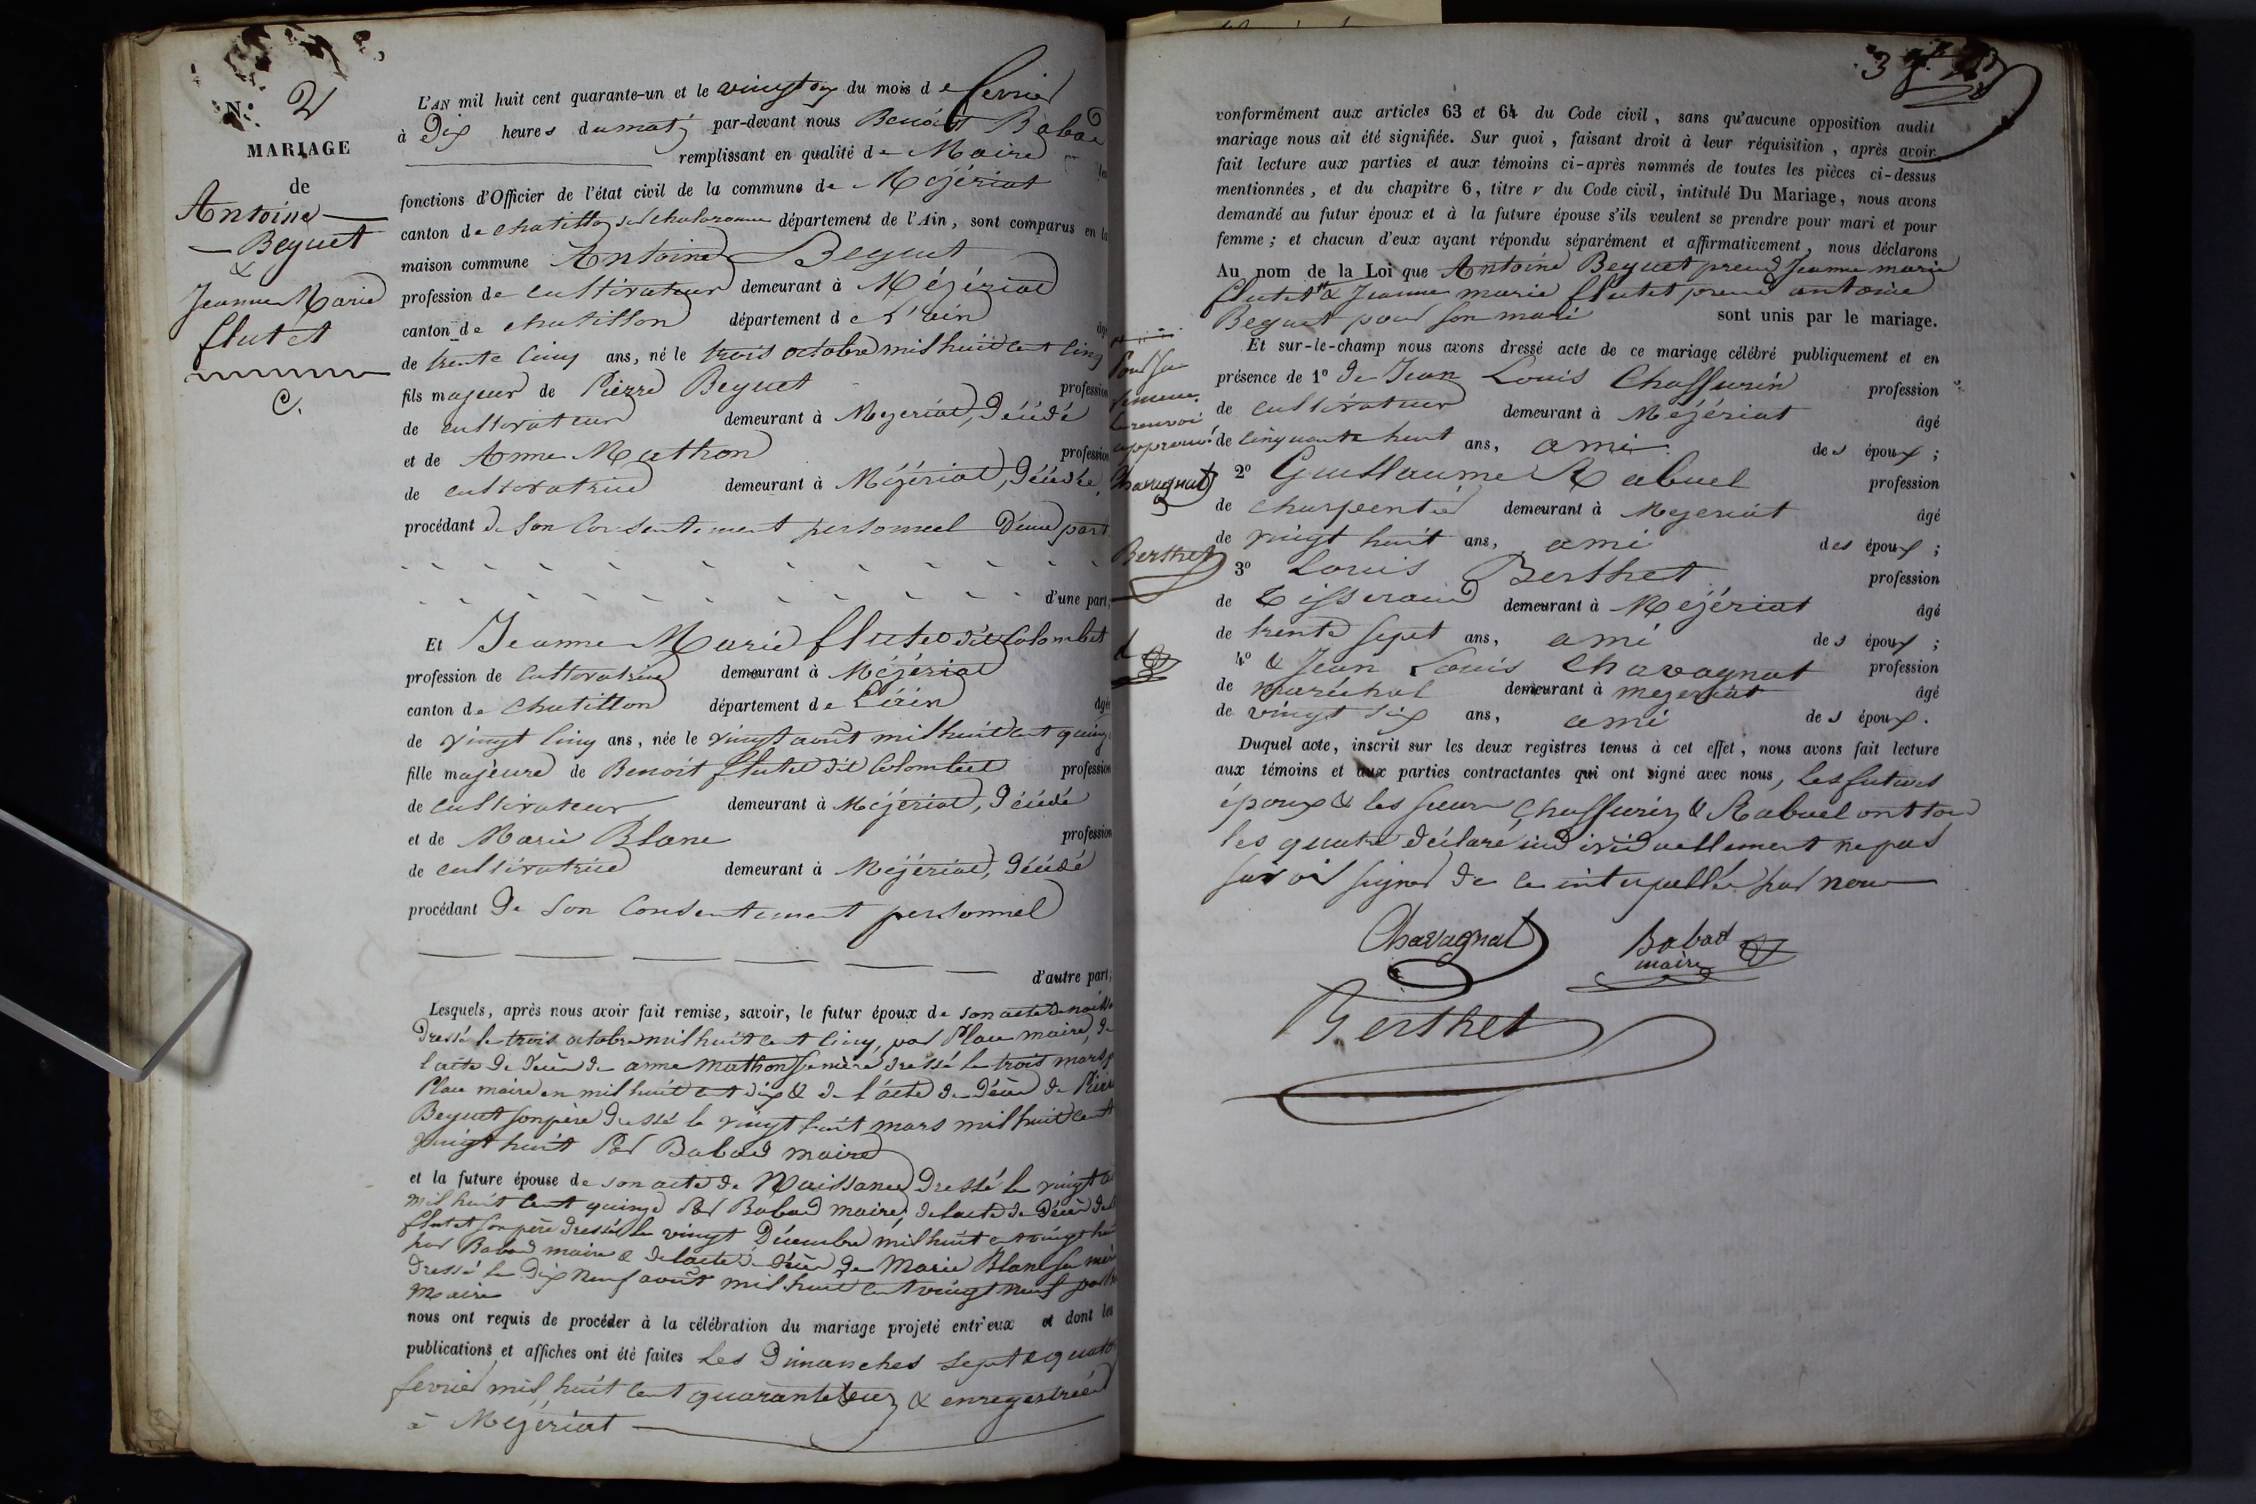 N.º 2
MARIAGE
de
Antoine
Beguet
&
Jeanne Marie
flutet
C.
L'AN mil huit cent quarante-un et le vingt du mois de fevrier
à Dix heures du matin par-devant nous Benoist Babad
remplissant en qualité de Maire les
fonctions d'Officier de l'état civil de la commune de Mezériat
canton de Chatillon sur Chalaronne département de l'Ain, sont comparus en la
maison commune Antoine Beguet
profession de cultivateur demeurant à Mézériat
canton de chatillon département de L'ain
de trente cinq ans, né le trois octobre mil huit cent cinq
fils majeur de Pierre Beguet profession
de cultivateur demeurant à Mezeriat, décédé
et de Anne Mathon profession
de cultivatrice demeurant à Mézériat, décédée,
procédant de son consentement personnel d'une part
d'une part;
Et Jeanne Marie flutet dit Colombet
profession de cultivatrice demeurant à Mézériat
canton de Chatillon département de L'ain âgée
de vingt cinq ans, née le vingt août mil huit cent quinze
fille majeure de Benoit flutet dit Colombet profession
de cultivateur demeurant à Mézériat, décédé
et de Marie Blanc profession
de cultivatrice demeurant à Mézériat, décédé
procédant de son consentement personnel
d'autre part;
Lesquels, après nous avoir fait remise, savoir, le futur époux de son acte de naissa
Dressé le trois octobre mil huit cent cinq, par Place maire, de
l'acte de décès de anne Mathon sa mère dressé le trois mars
Place maire en mil huit cent dix & de l'acte de décès de Pierre
Beguet son père dressé le vingt huit mars mil huit cent
vingt huit Par Babad maire
et la future épouse de son acte de Naissance dressé le vingt
mil huit cent quinze Par Babad maire, de l'acte de décès de
flutet son père dressé le vingt Décembre mil huit cent vingt
par Babad maire & de l'acte de décès de Marie Blanc sa mère
dressé le dix neuf août mil huit cent vingt neuf par
maire
nous ont requis de procéder à la célébration du mariage projeté entr'eux et dont les
publications et affiches ont été faites les Dimanches sept & quato
fevrier mil huit cent quarante & enregistrées
à Mézériat
3
conformément aux articles 63 et 64 du Code civil, sans qu'aucune opposition audit
mariage nous ait été signifiée. Sur quoi, faisant droit à leur réquisition, après avoir
fait lecture aux parties et aux témoins ci-après nommés de toutes les pièces ci-dessus
mentionnées, et du chapitre 6, titre v du Code civil, intitulé Du Mariage, nous avons
demandé au futur époux et à la future épouse s'ils veulent se prendre pour mari et pour
femme; et chacun d'eux ayant répondu séparément et affirmativement, nous déclarons
Au nom de la Loi que Antoine Beguet prend Jeanne marie
flutet & Jeanne marie flutet prend antoine
Beguet pour son mari sont unis par le mariage.
pour sa
femme.
le renvoi
approuvé
Chavagnat
Berthet
Et sur-le-champ nous avons dressé acte de ce mariage célébré publiquement et en
présence de 1º de Jean Louis Chaffurin profession
de cultivateur demeurant à Mézériat âgé
de cinquante huit ans, ami des époux;
2º Guillaume Rabuel profession
de charpentier demeurant à Mezeriat âgé
de vingt huit ans, ami des époux;
3º Louis Berthet profession
de Tisserand demeurant à Mézériat âgé
de trente sept ans, ami des époux;
4º & Jean Louis Chavagnat profession
de maréchal demeurant à mezeriat âgé
de vingt six ans, ami des époux.
Duquel acte, inscrit sur les deux registres tenus à cet effet, nous avons fait lecture
aux témoins et aux parties contractantes qui ont signé avec nous, les futurs
époux & les sieurs Chaffurin & Rabuel ont tou
les quatre déclaré individuellement ne pas
savoir signer de ce interpellés par nous
Chavagnat
Babad
maire
Berthet